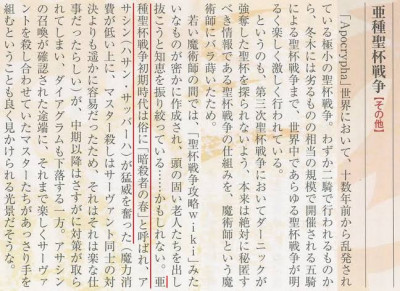 亜種聖杯戦争【その他】
「Apocrypha」世界において、十数年前から乱発され
ている極小の聖杯戦争。わずか二騎で行われるものか
ら、冬木には劣るものの相当の規模で開催される五騎
による聖杯戦争まで、世界中であらゆる聖杯戦争が明
るく楽しく激しく行われている。
というのも、第三次聖杯戦争においてダーニックが
強奪した聖杯を探られないよう、本来は絶対に秘匿す
べき情報である聖杯戦争の仕組みを、魔術師という魔
術師にバラ蒔いたため。
若い魔術師の間では、「聖杯戦争攻略wiki」みた
いなものが密かに作成され、頭の固い老人たちを出し
抜こうと知恵を振り絞っている……かもしれない。亜
種聖杯戦争初期時代は俗に「暗殺者の春」と呼ばれ、ア
サシン(ハサン・サッバーハ)が猛威を奮った(魔力消
費が低い上に、マスター殺しはサーヴァント同士の対
決よりも遥かに容易だったため、それはそれは楽な仕
事だったらしい)が、中期以降はさすがに対策が取ら
れてしまい、ダイアグラムも下落する一方。アサシン
の召喚が確認された途端に、それまで楽しくサーヴァ
ントを殺し合わせていたマスターたちがあっさり手を
組むということも良く見かけられる光景だそうな。